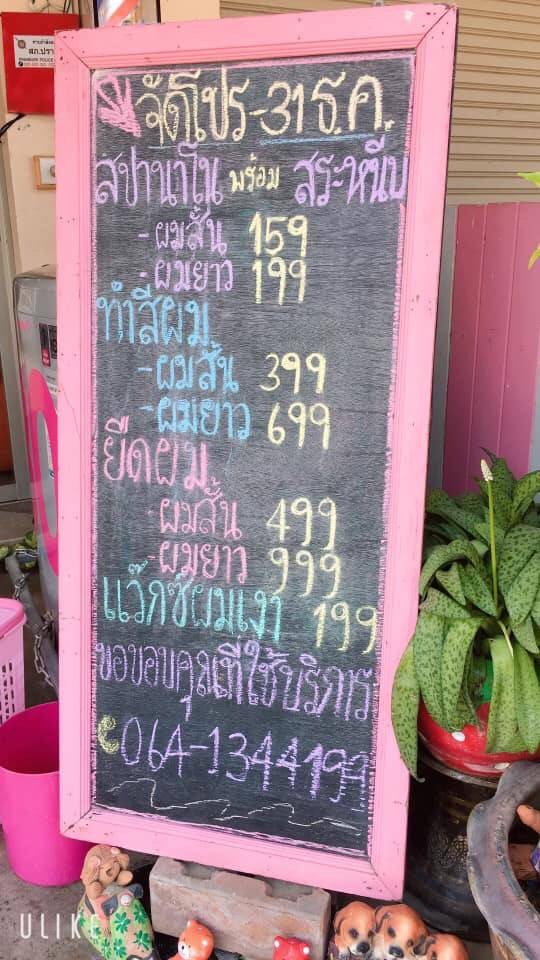 จัดโปร-31 ธ.ค.
สปานาโน พร้อม สระหนีบ
-ผมสั้น 159
-ผมยาว 199
ทำสีผม
-ผมสั้น 399
-ผมยาว 699
ยืดผม
-ผมสั้น 499
-ผมยาว 999
แว๊กซ์ผมเงา 199
ขอขอบคุณที่ใช้บริการ
064-1344194
ULIKE